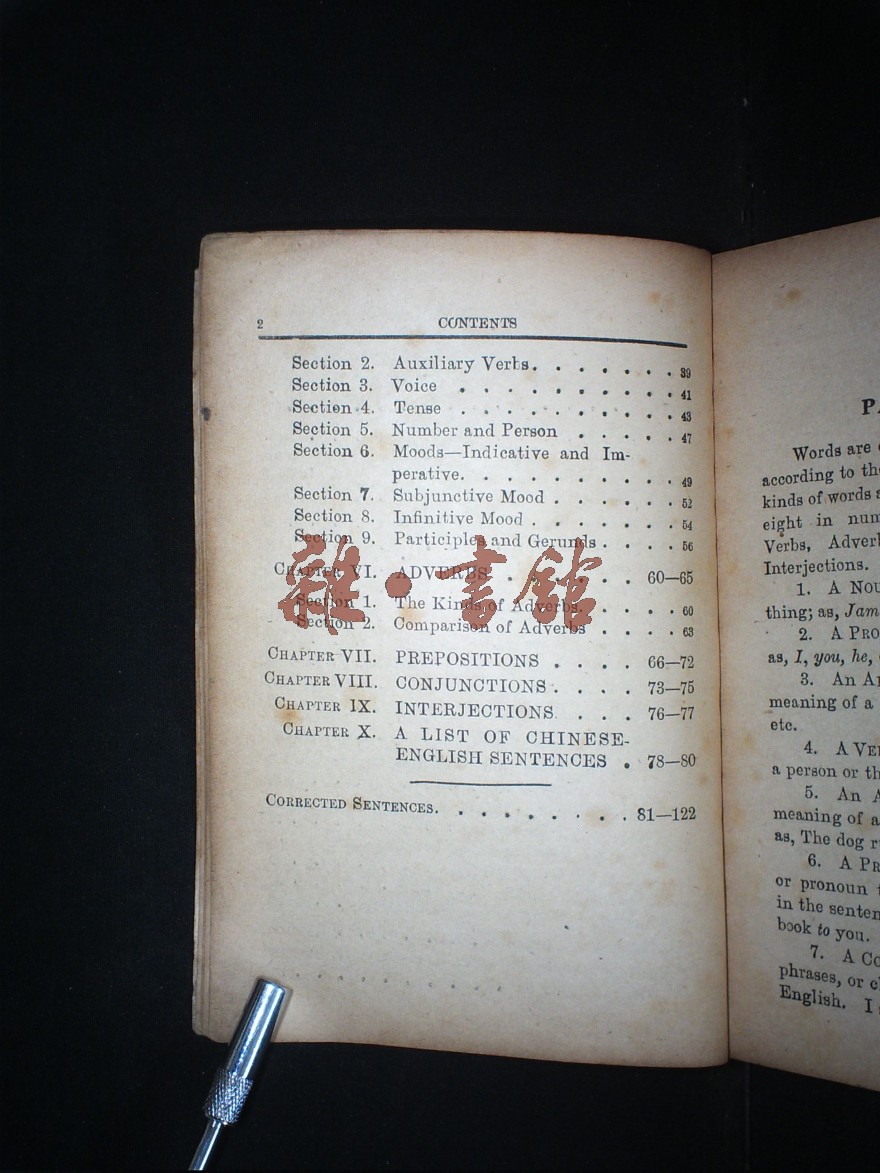 2 CONTENTS
Section 2. Auxiliary Verbs. . . . . . . 39
Section 3. Voice . . . . . . . . . 41
Section 4. Tense . . . . . . . . . 43
Section 5. Number and Person . . . . . 47
Section 6. Moods—Indicative and Im-
perative. . . . . . . . . 49
Section 7. Subjunctive Mood . . . . . . 52
Section 8. Infinitive Mood . . . . . . . 54
Section 9. Participles and Gerunds . . . . 56
CHAPTER VI. ADVERBS . . . . . . 60—65
Section 1. The Kinds of Adverbs. . . . . 60
Section 2. Comparison of Adverbs . . . . 63
CHAPTER VII. PREPOSITIONS . . . . 66—72
CHAPTER VIII. CONJUNCTIONS . . . . 73—75
CHAPTER IX. INTERJECTIONS . . . 76—77
CHAPTER X. A LIST OF CHINESE-
ENGLISH SENTENCES . 78—80
CORRECTED SENTENCES. . . . . . . . . 81—122
雜·書館
Words are
according to the
kinds of words
eight in
Verbs,
Interjections.
1. A
thing; as,
2. A
as, I, you, he,
3. An
meaning of a
etc.
4. A
a person or
5. An
meaning of
as, The dog
6. A
or pronoun
in the
book to you.
7. A
phrases, or
English. I